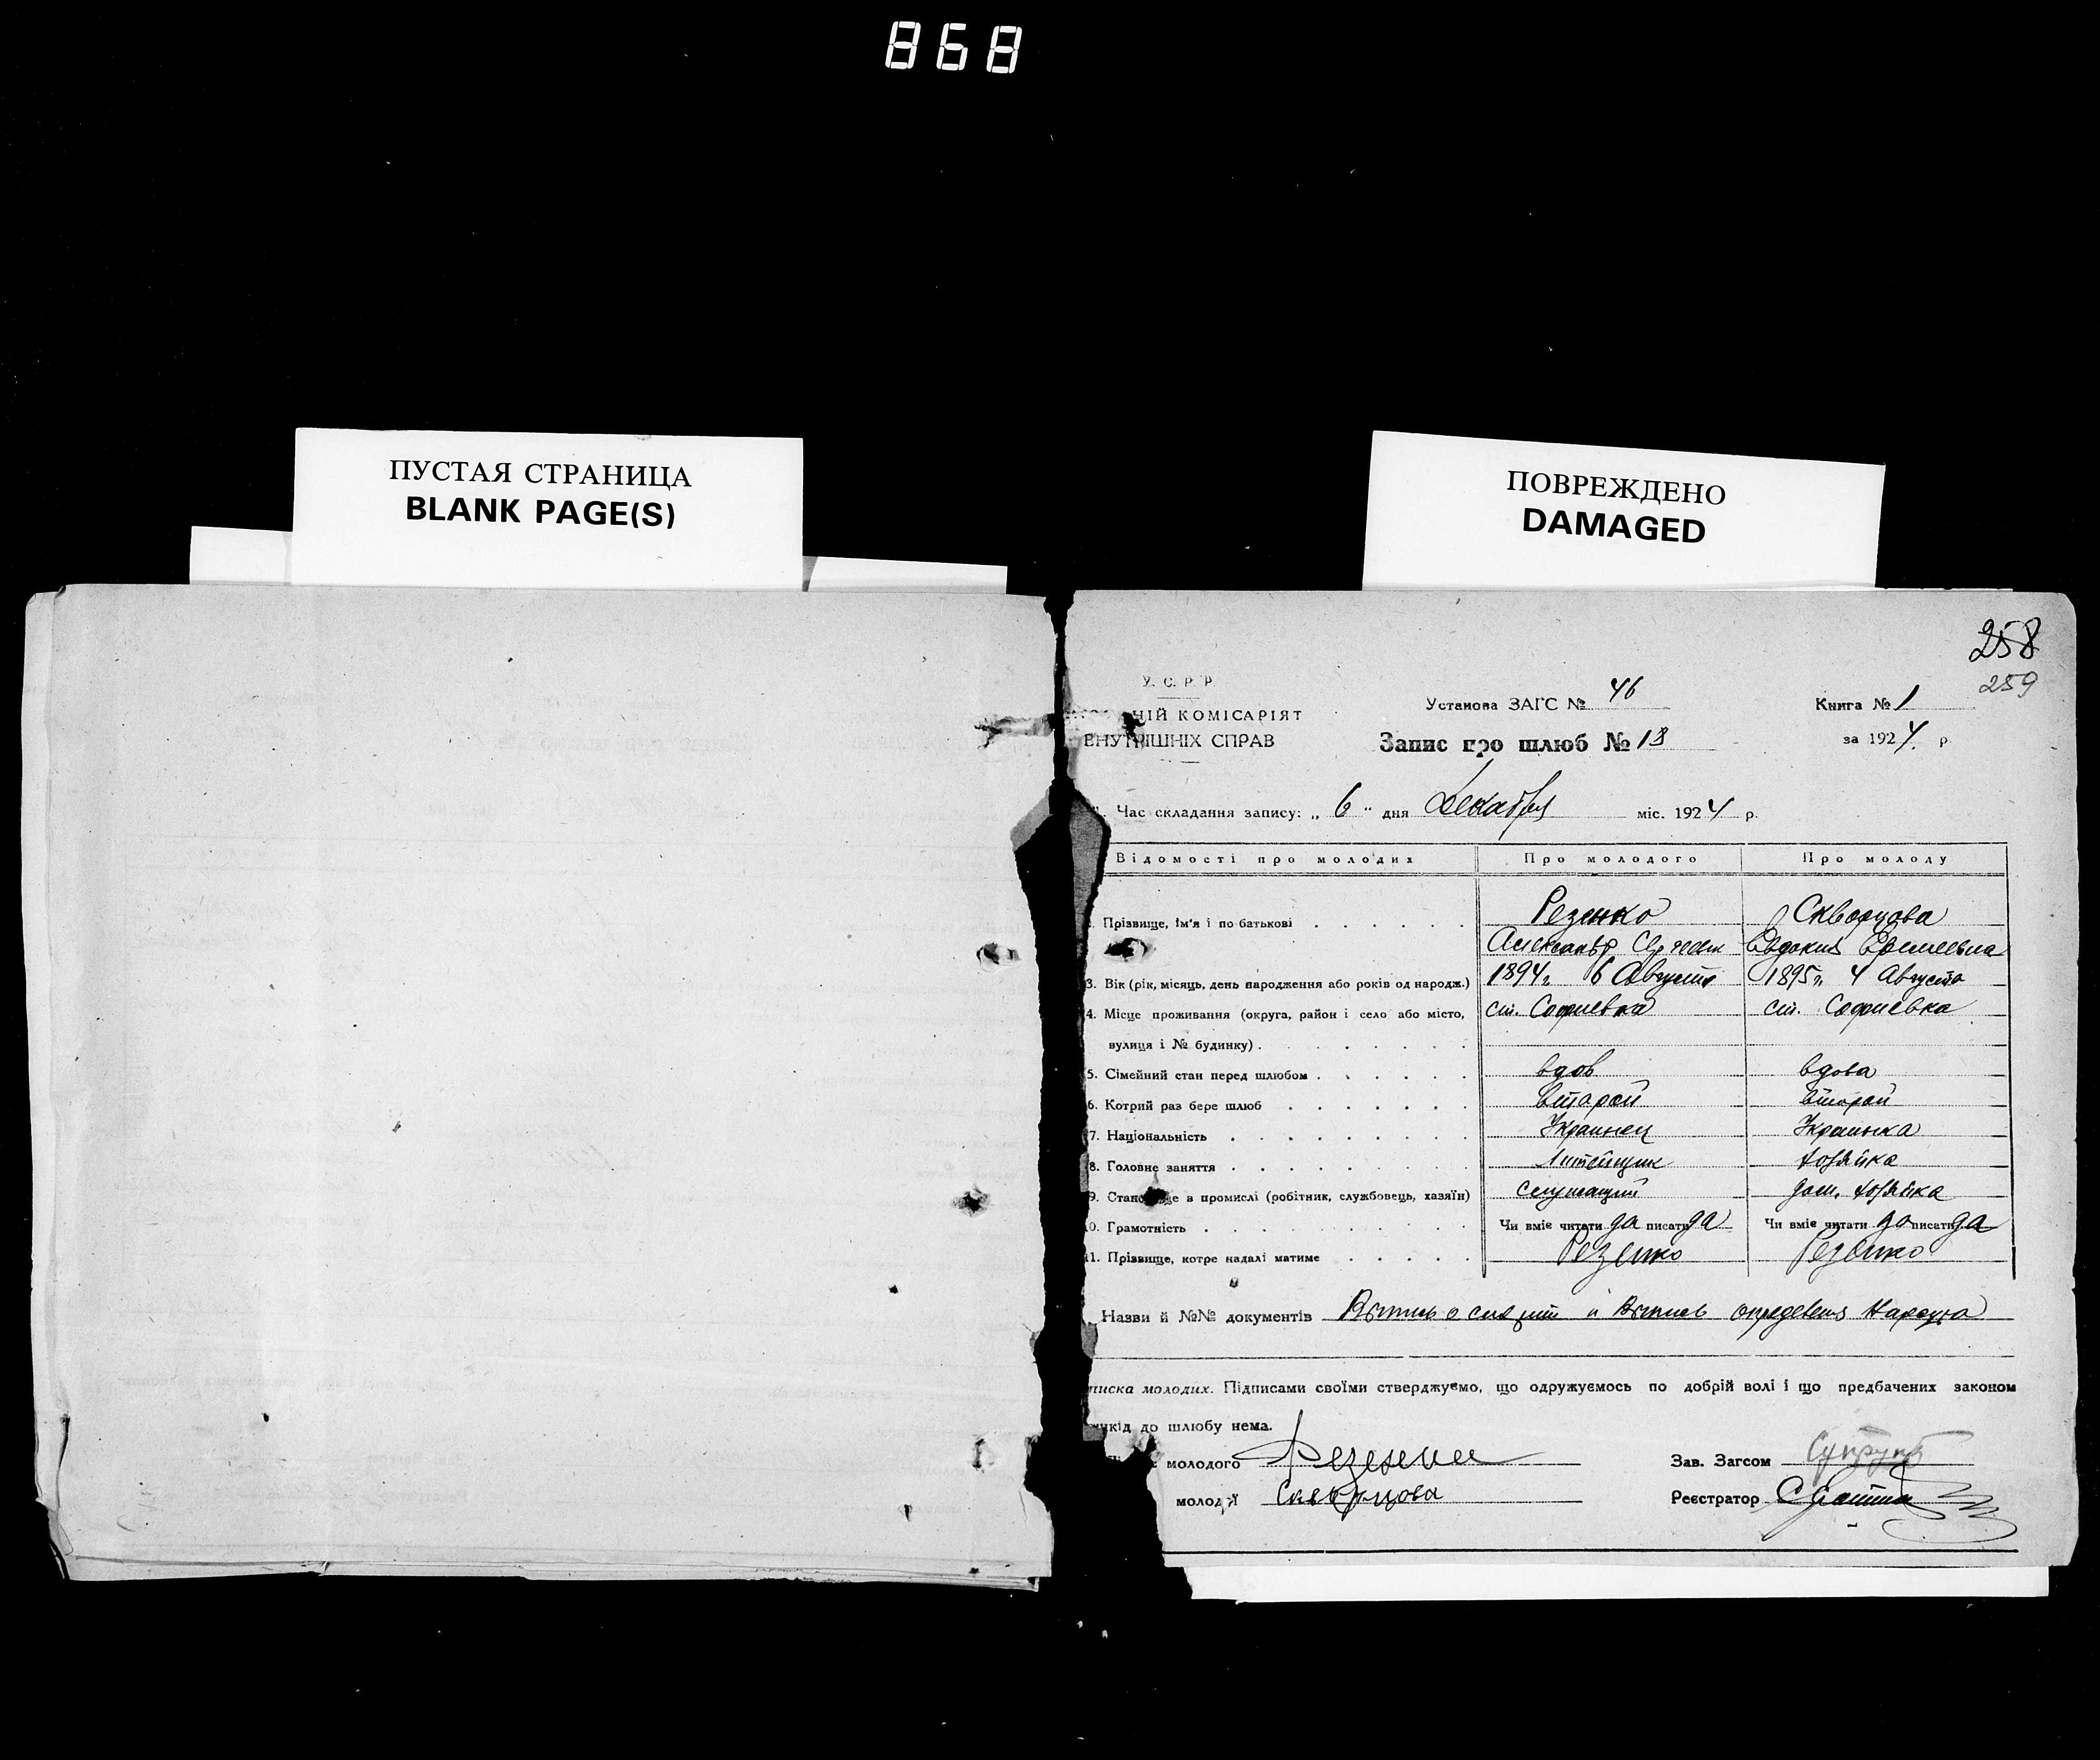 868
ПУСТАЯ СТРАНИЦА
BLANK PAGE(S)
ПОВРЕЖДЕНО
DAMAGED
258
259
У. С. Р. Р.
НІЙ КОМІСАРІЯТ
ВНУТРІШНІХ СПРАВ
Установа ЗАГС № 46
Книга № 1
Запис про шлюб № 18
за 1924 р.
Час складання запису: „ 6 “ дня Декабря міс. 1924 р.
Відомості про молодих Про молодого Про молоду
Прізвище, ім'я і по батькові Резенко Скворцова
Александр Сергеев Евдокия Еремеевна
3. Вік (рік, місяць, день народження або років од народж.) 1894 г. 6 Августа 1895 г. 4 Августа
4. Місце проживання (округа, район і село або місто, ст. Софиевка ст. Софиевка
вулиця і № будинку)
5. Сімейний стан перед шлюбом вдов вдова
6. Котрий раз бере шлюб второй второй
7. Національність Украинец Украинка
8. Головне заняття Литейщик хозяйка
9. Становище в промислі (робітник, службовець, хазяїн) служащий дом. хозяйка
10. Грамотність Чи вміє читати да писати да Чи вміє читати да писати да
11. Прізвище, котре надалі матиме Резенко Резенко
Назви й №№ документів Выпись о и Выпись Нарсуда
писка молодих. Підписами своїми стверджуємо, що одружуємось по добрій волі і що предбачених законом
шкід до шлюбу нема.
молодого Резенко Зав. Загсом Супрун
молодої Скворцова Реєстратор